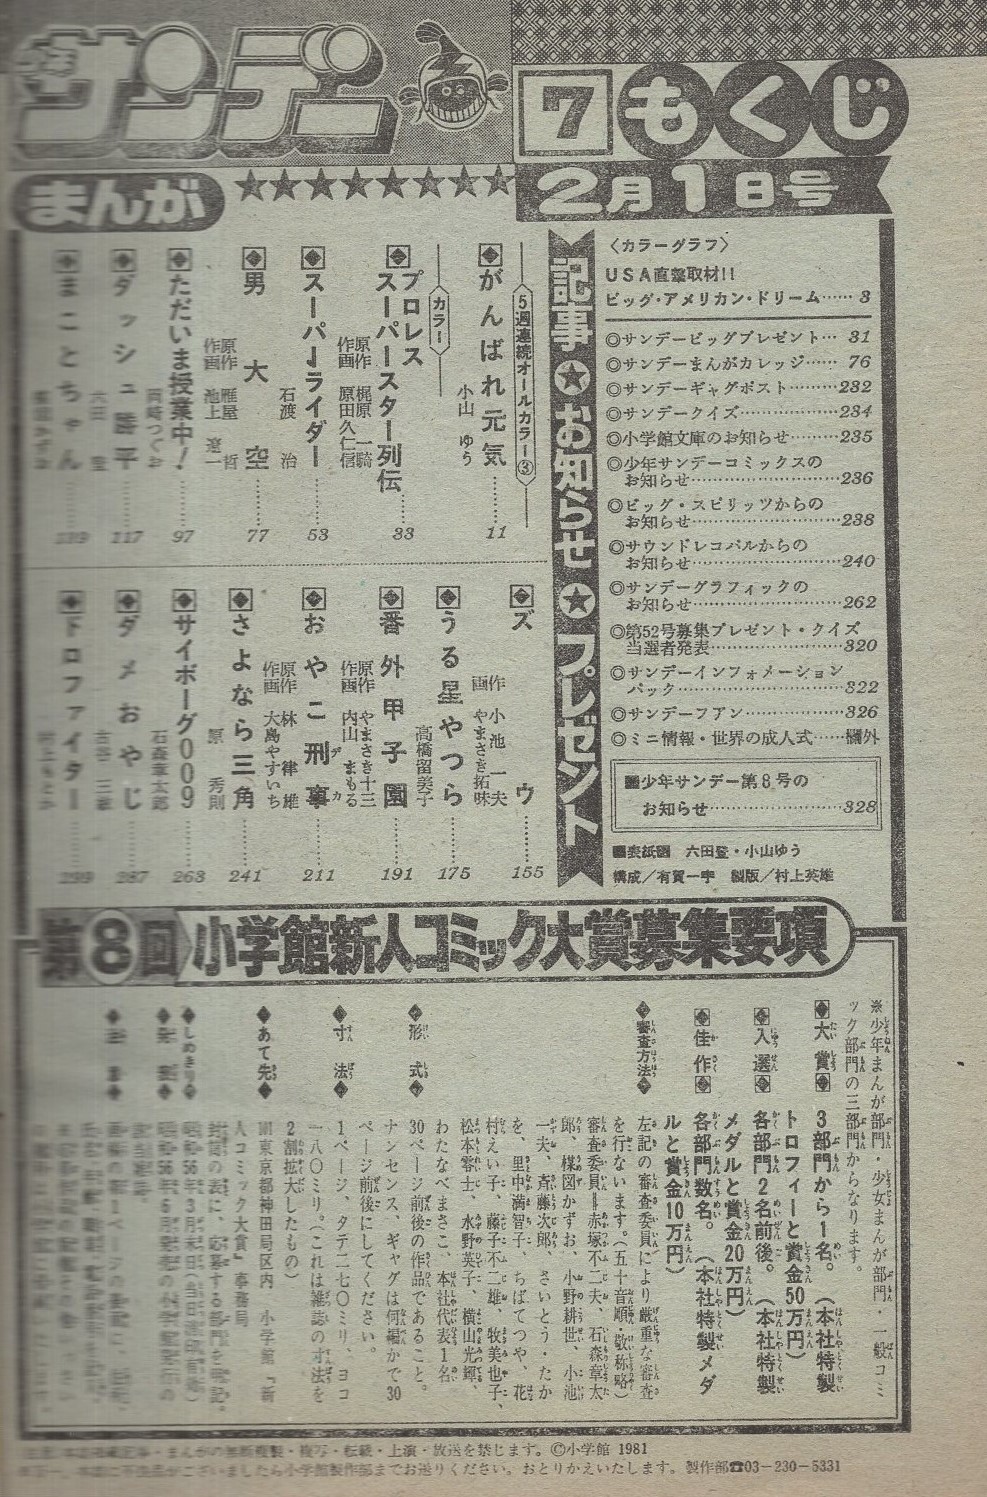 サンデー
7 もくじ
2月1日号
まんが
〈カラーグラフ〉
USA直撃取材!!
ビッグ・アメリカン・ドリーム……3
◎サンデービッグプレゼント…31
◎サンデーまんがカレッジ……76
◎サンデーギャグポスト……232
◎サンデークイズ……234
◎小学館文庫のお知らせ……235
◎少年サンデーコミックスの
お知らせ……236
◎ビッグ・スピリッツからの
お知らせ……238
◎サウンドレコパルからの
お知らせ……240
◎サンデーグラフィックの
お知らせ……262
◎第52号募集プレゼント・クイズ
当選者発表……320
◎サンデーインフォメーション
パック……322
◎サンデーフアン……326
◎ミニ情報・世界の成人式……欄外
■少年サンデー第8号の
お知らせ……328
■表紙画 六田登・小山ゆう
構成／有賀一宇 製版／村上英雄
記事★お知らせ★プレゼント
5週連続オールカラー③
がんばれ元気 小山ゆう……11
カラー
プロレス
スーパースター列伝 原作 梶原一騎 作画 原田久仁信……33
スーパーライダー 石渡治……53
男大空 原作 雁屋哲 作画 池上遼一……77
ただいま授業中！ 岡崎つぐお……97
ダッシュ勝平 六田登……117
まことちゃん
ズウ 作 小池一夫 画 やまさき拓味……155
うる星やつら 高橋留美子……175
番外甲子園 原作 やまさき十三 作画 内山まもる……191
おやこ刑事 デカ 原作 林律雄 作画 大島やすいち……211
さよなら三角 原秀則……241
サイボーグ009 石森章太郎……263
ダメおやじ 古谷三敏……287
ドロファイター 村上もとか……299
第8回 小学館新人コミック大賞募集要項
※少年まんが部門・少女まんが部門・一般コミ
ック部門の三部門からなります。
◆大賞◆ 3部門から1名。（本社特製
トロフィーと賞金50万円）
◆入選◆ 各部門2名前後。（本社特製
メダルと賞金20万円）
◆佳作◆ 各部門数名。（本社特製メダ
ルと賞金10万円）
◆審査方法◆ 左記の審査委員により厳重な審査
を行ないます。（五十音順・敬称略）
審査委員＝赤塚不二夫、石森章太
郎、楳図かずお、小野耕世、小池
一夫、斉藤次郎、さいとう・たか
を、里中満智子、ちばてつや、花
村えい子、藤子不二雄、牧美也子、
松本零士、水野英子、横山光輝、
わたなべまさこ、本社代表1名
◆形式◆ 30ページ前後の作品であること。
ナンセンス、ギャグは何編かで30
ページ前後にしてください。
◆寸法◆ 1ページ、タテ二七〇ミリ、ヨコ
一八〇ミリ。（これは雑誌の寸法を
2割拡大したもの）
◆あて先◆ 東京都神田局区内 小学館「新
人コミック大賞」事務局
封筒の表に、応募する部門を明記。
◆しめきり◆ 昭和56年3月末日（当日消印有効）
◆発表◆ 昭和56年6月発売の小学館発行の
本誌掲載記事・まんがの無断複製・複写・転載・上演・放送を禁じます。©小学館 1981
に不良品がございましたら小学館製作部までお送りください。おとりかえいたします。製作部☎03－230－5331